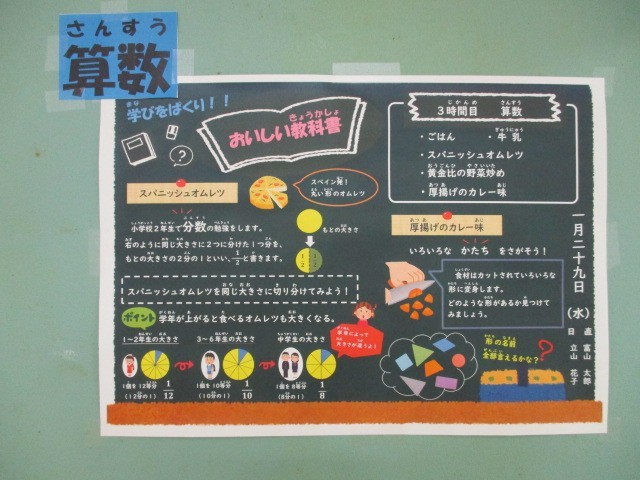 さんすう
算数
学びをぱくり！！
おいしい教科書
3時間目 算数
・ごはん ・牛乳
・スパニッシュオムレツ
・黄金比の野菜炒め
・厚揚げのカレー味
スパニッシュオムレツ
スペイン発！
丸い形のオムレツ
小学校2年生で分数の勉強をします。
右のように同じ大きさに2つに分けた1つ分を、
もとの大きさの2分の1といい、1/2と書きます。
もとの大きさ
1/2
スパニッシュオムレツを同じ大きさに切り分けてみよう！
ポイント 学年が上がると食べるオムレツも大きくなる。
1～2年生の大きさ
1個を12等分
(12分の1)
1/12
3～6年生の大きさ
1個を10等分
(10分の1)
1/10
中学生の大きさ
1個を8等分
(8分の1)
1/8
学年によって
大きさが違うよ！
厚揚げのカレー味
いろいろな かたち をさがそう！
食材はカットされていろいろな
形に変身します。
どのような形があるか見つけて
みましょう。
形の名前
全部言えるかな？
一月二十九日（水）
日直 富山 太郎
立山 花子